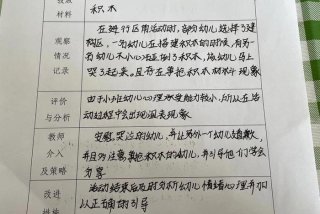 材料
积木
观察
情况
记录
在进行区角活动时,部分幼儿选择了建
构区,一名幼儿在搭建积木的时候,有另一
名幼儿不小心碰倒了积木,该幼儿马上
哭了起来,且存在争抢积木材料现象
评价
与分析
由于小班幼儿心理承受能力较小,所以在活
动过程中会出现这表现象
教师
介入
及策略
安慰哭泣的幼儿,并让另外一个幼儿道歉,
并且对注意争抢积木的幼儿,并引导他们学会
分享
改进
措施
活动结束后及时分析幼儿情绪心理并加
以正确的引导